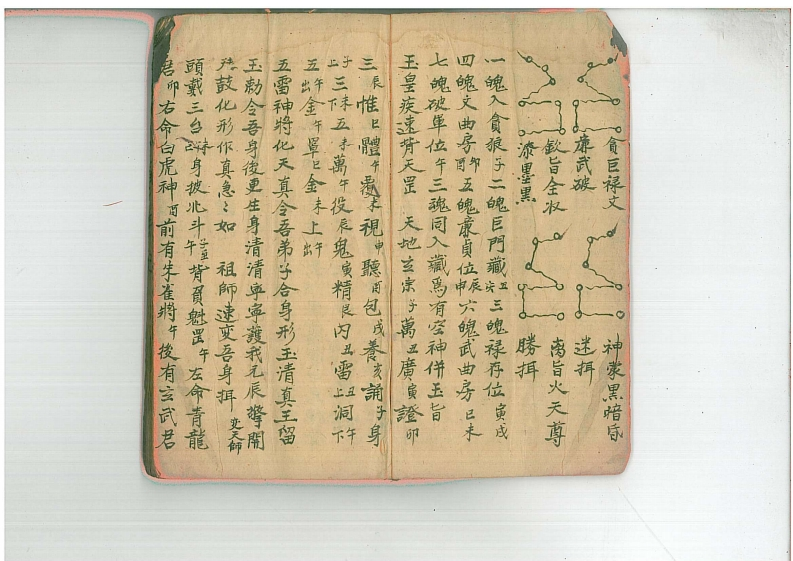 貪巨禄文
神蒙黑暗昏
廉武破
迷捐
欽旨全
南旨火天尊
漆墨黑
勝捐
一魄入貪狼子二魄巨門藏丑亥三魄禄存位寅戌
四魄文曲房卯酉五魄廉貞位辰申六魄武曲房巳未
七魄破軍位午三魂同入藏爲有空神併玉旨
玉皇疾速背天罡 天地玄宗子萬丑廣寅證卯
三辰惟巳體午 未視申聽酉包戌養亥誦子身
子上三下未五未萬午役辰鬼寅精 内丑雷丑上洞午下
五午出金午罩巳金未上午出
五雷神將化天真令吾弟子合身形玉清真王留
玉勅令吾身後更生身清清寧寧護我元辰擊開
鼓化形作真急々如 祖師速変吾身捐変天師
頭戴三台 身披北斗子午 背負魁罡午左命青龍
君卯右命白虎神酉前有朱雀將午後有玄武君